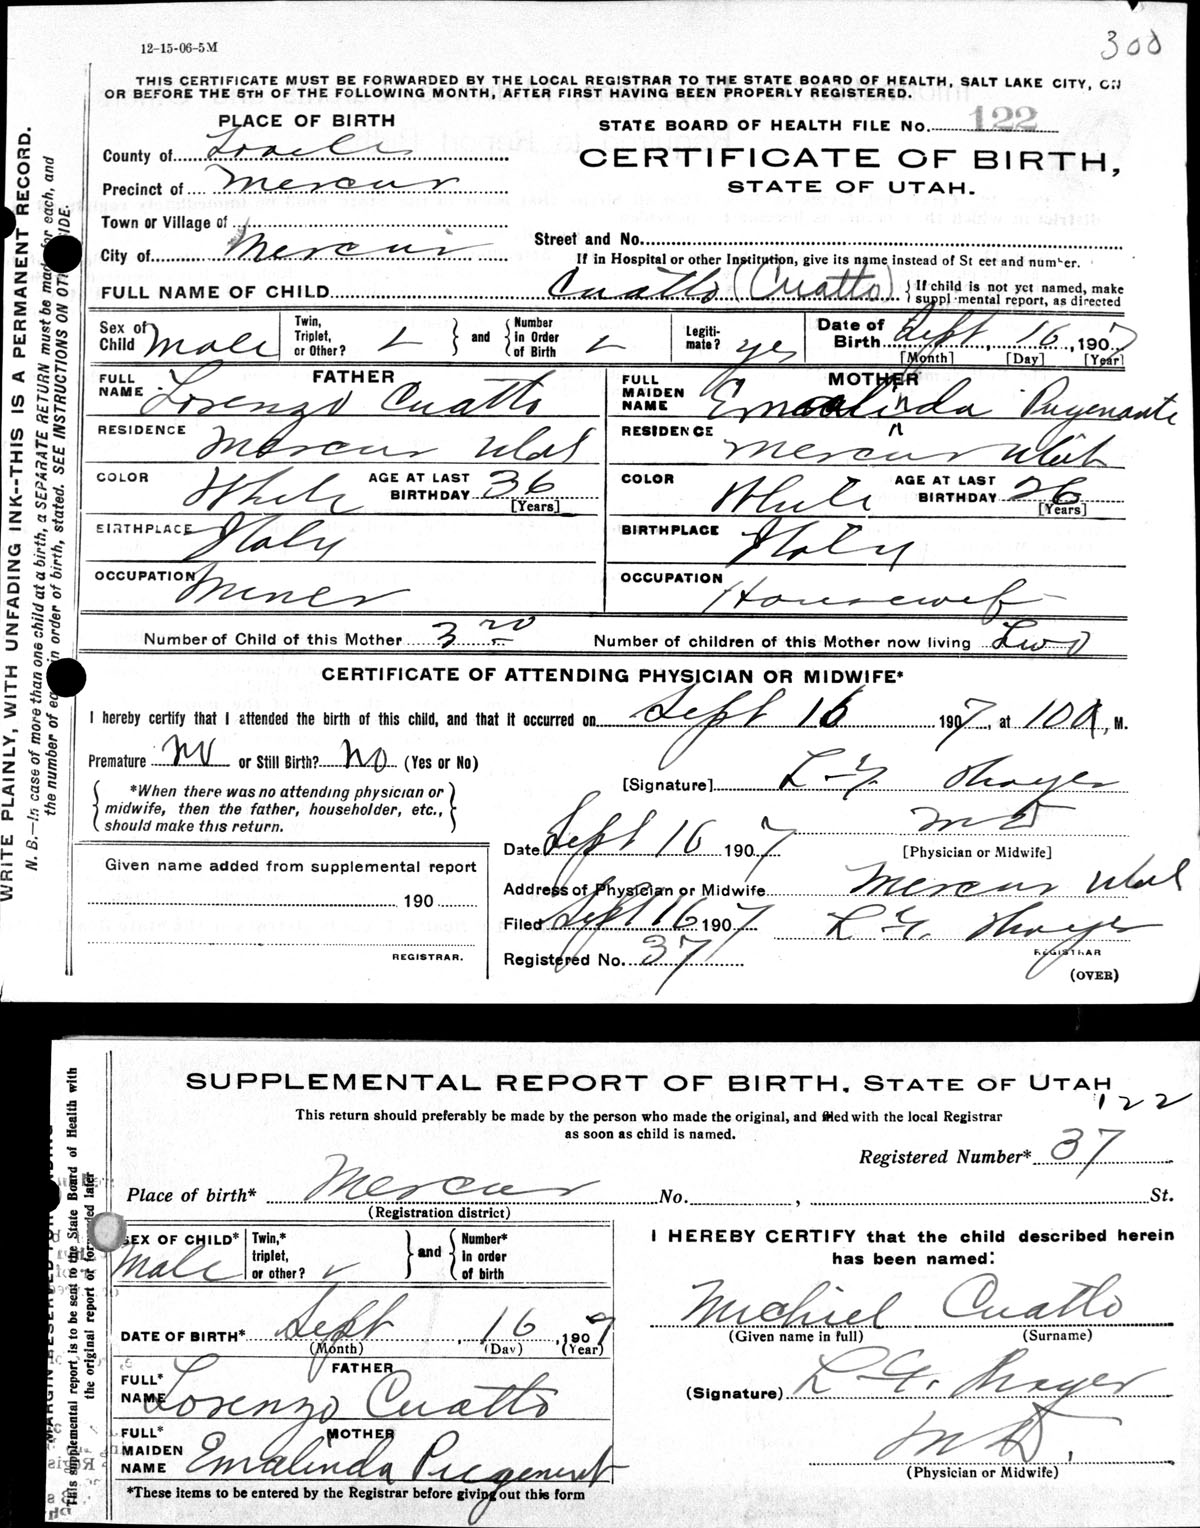 12-15-06-5M
300
THIS CERTIFICATE MUST BE FORWARDED BY THE LOCAL REGISTRAR TO THE STATE BOARD OF HEALTH, SALT LAKE CITY, ON
OR BEFORE THE 5TH OF THE FOLLOWING MONTH, AFTER FIRST HAVING BEEN PROPERLY REGISTERED.
PLACE OF BIRTH
STATE BOARD OF HEALTH FILE No. 122
County of
CERTIFICATE OF BIRTH,
STATE OF UTAH.
Precinct of Mercur
Town or Village of
City of Mercur
Street and No.
If in Hospital or other Institution, give its name instead of Street and number.
FULL NAME OF CHILD Cuatto (Cuatto) { If child is not yet named, make
supplemental report, as directed
Sex of Child Male
Twin, Triplet, or Other?
and
Number in Order of Birth
Legitimate? yes
Date of Birth Sept 16, 1907
[Month] [Day] [Year]
FATHER
FULL NAME Lorenzo Cuatto
RESIDENCE Mercur Utah
COLOR White AGE AT LAST BIRTHDAY 36 [Years]
BIRTHPLACE Italy
OCCUPATION Miner
MOTHER
FULL MAIDEN NAME Emalinda
RESIDENCE Mercur Utah
COLOR White AGE AT LAST BIRTHDAY 26 [Years]
BIRTHPLACE Italy
OCCUPATION Housewife
Number of Child of this Mother 3rd Number of children of this Mother now living Two
CERTIFICATE OF ATTENDING PHYSICIAN OR MIDWIFE*
I hereby certify that I attended the birth of this child, and that it occurred on Sept 16 1907, at 10 A, M.
Premature No or Still Birth? No (Yes or No)
[Signature]
*When there was no attending physician or
midwife, then the father, householder, etc.,
should make this return.
M D
Date Sept 16 1907 [Physician or Midwife]
Given name added from supplemental report
190
REGISTRAR.
Address of Physician or Midwife Mercur Utah
Filed Sept 16 1907
REGISTRAR
Registered No. 37
(OVER)
WRITE PLAINLY, WITH UNFADING INK--THIS IS A PERMANENT RECORD.
N. B.—In case of more than one child at a birth, a SEPARATE RETURN must be made for each, and
the number of each in order of birth, stated. SEE INSTRUCTIONS ON OTHER SIDE.
SUPPLEMENTAL REPORT OF BIRTH, STATE OF UTAH
122
This return should preferably be made by the person who made the original, and filed with the local Registrar
as soon as child is named.
Registered Number* 37
Place of birth* Mercur No. , St.
(Registration district)
SEX OF CHILD* Male
Twin,* triplet, or other?
and
Number* in order of birth
DATE OF BIRTH* Sept, 16, 1907
(Month) (Day) (Year)
FATHER
FULL* NAME Lorenzo Cuatto
MOTHER
FULL* MAIDEN NAME Emalinda
*These items to be entered by the Registrar before giving out this form
I HEREBY CERTIFY that the child described herein
has been named:
Michiel Cuatto
(Given name in full) (Surname)
(Signature)
M D,
(Physician or Midwife)
This supplemental report is to be sent to the State Board of Health with
the original report or forwarded later